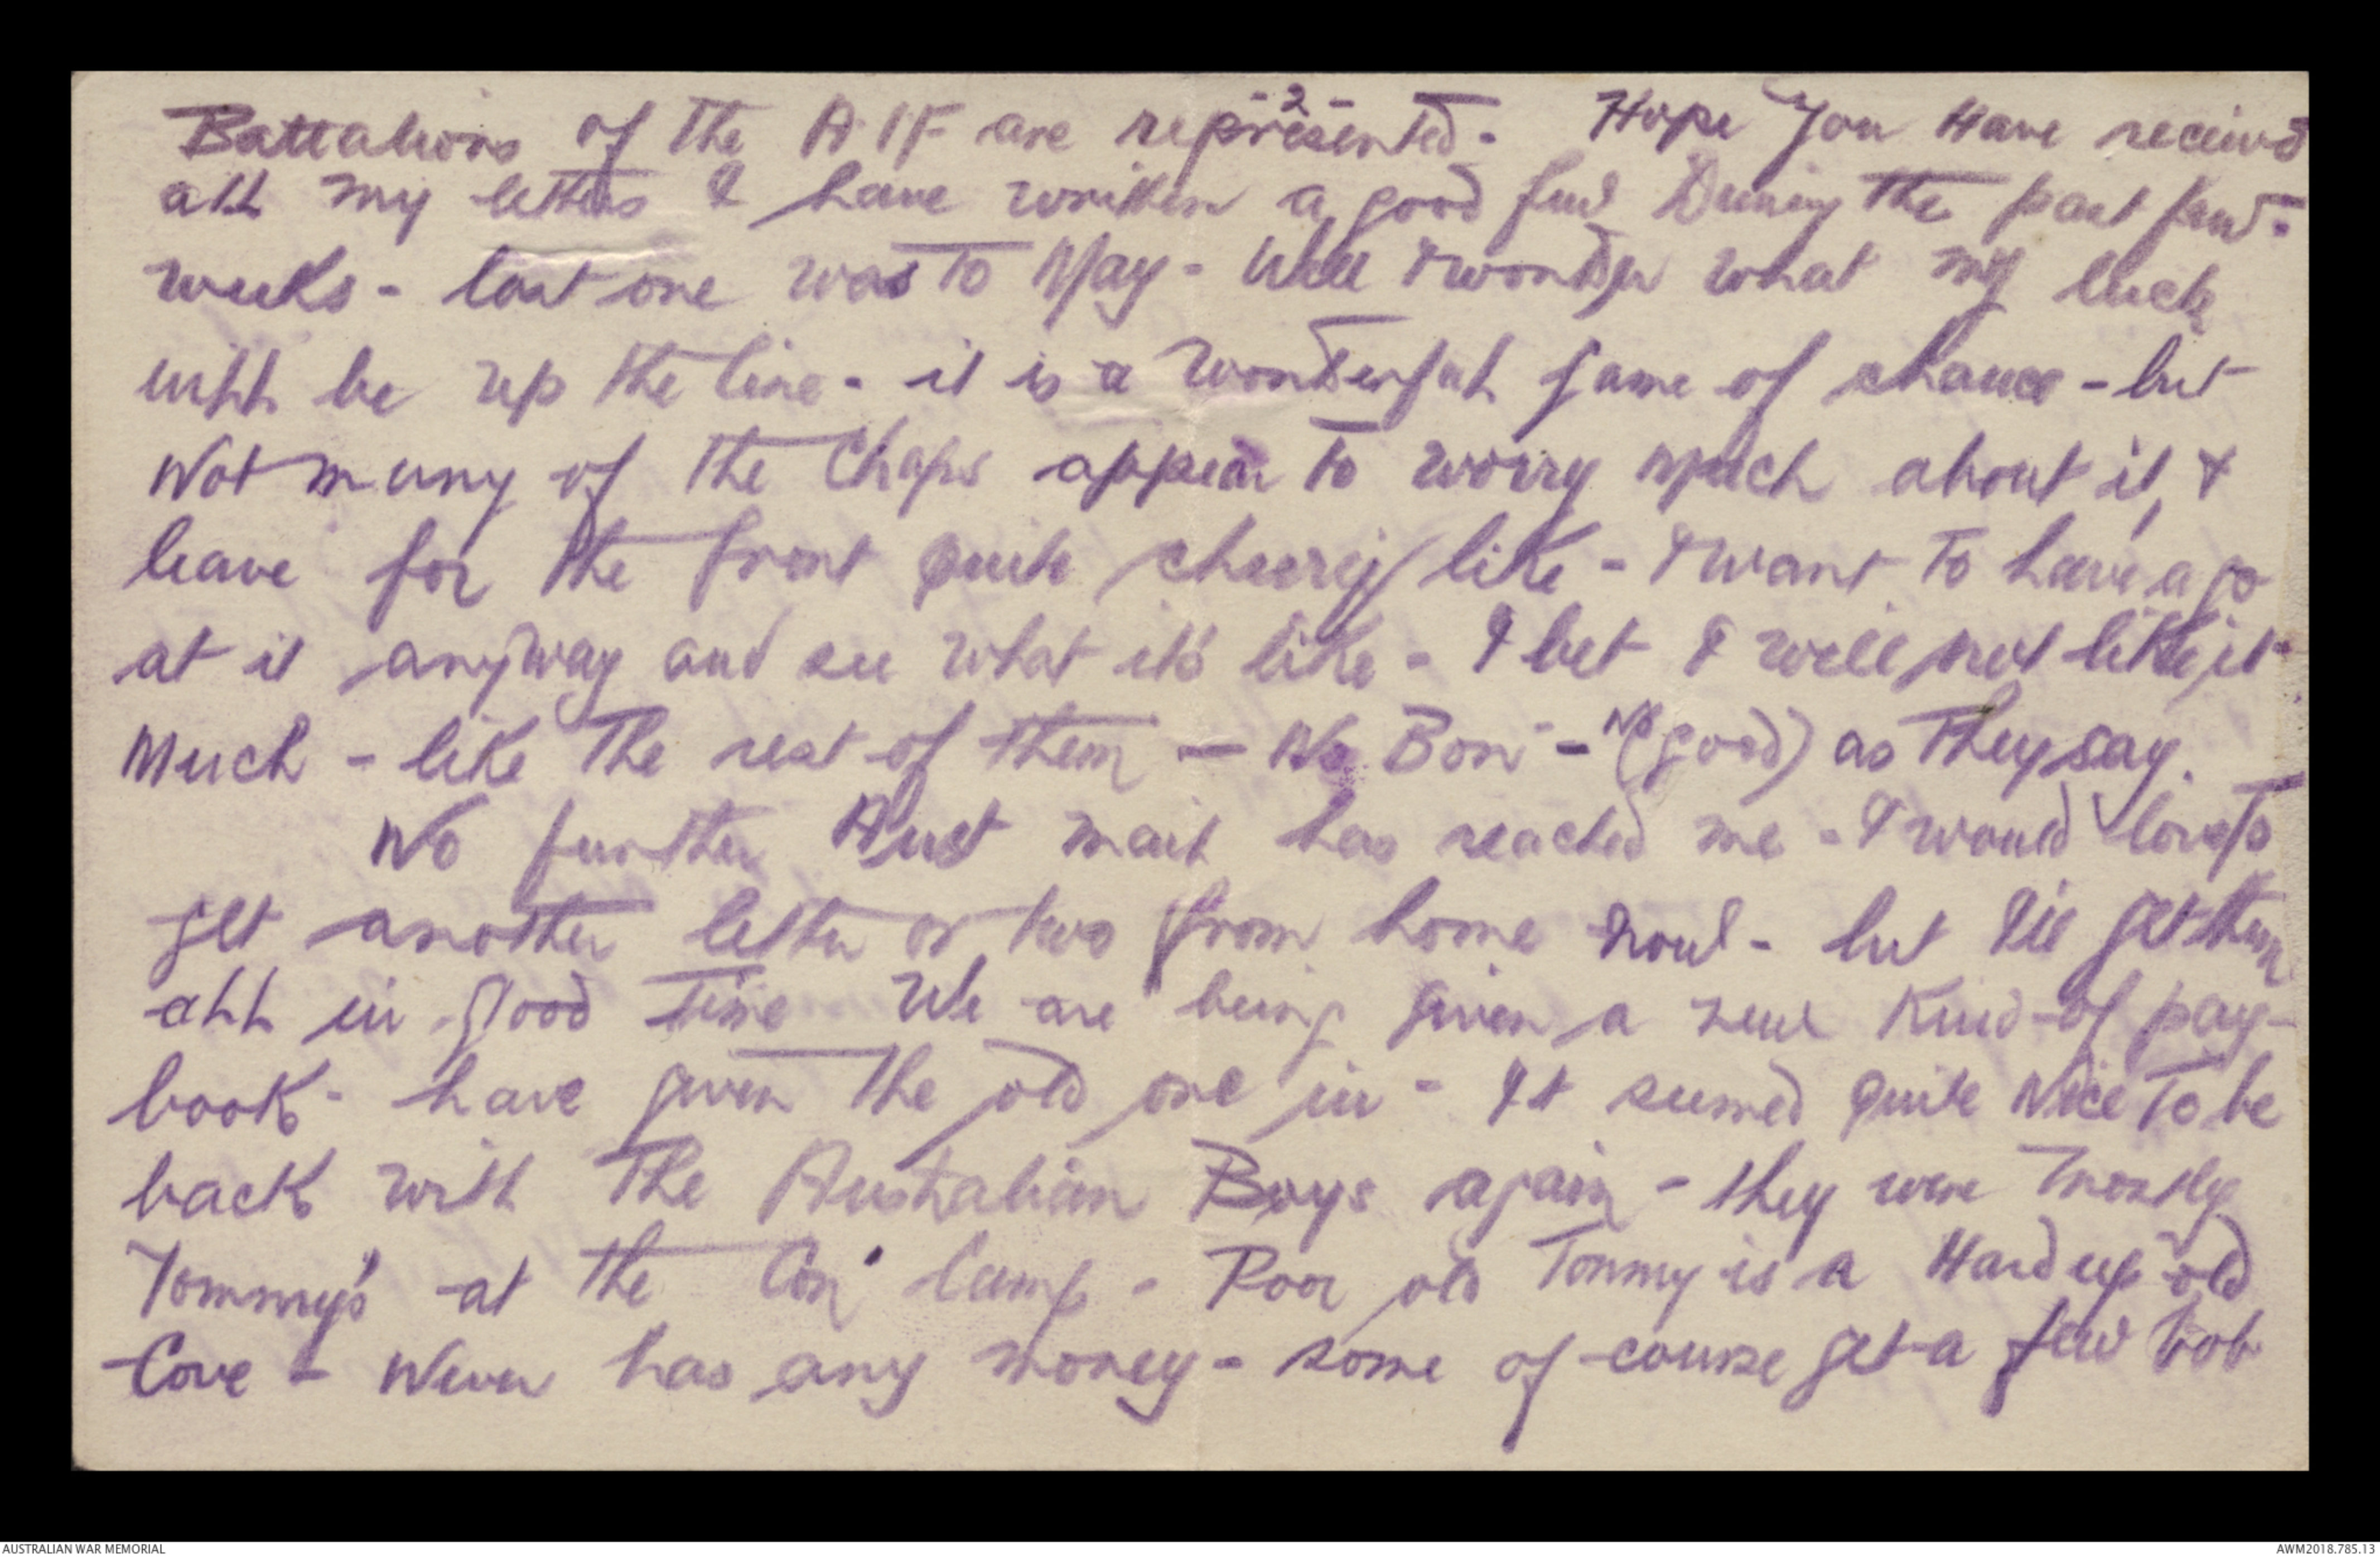 -2-
Battalions of the A.I.F are represented. Hope you Have received
all my letters I have written a good few During the past few.
weeks - last one was to May - Well I wonder what my luck
will be up the line - it is a wonderful game of chance - but
Not many of the Chaps appear to worry Much about it, &
leave for the front quite cheery like - I want to have a go
at it anyway and see what it's like - I bet I will not like it
Much - like the rest of them - No Bon - (No good) as They say.
No further Aust mail has reached me - I would love to
get another letter or two from home now - but I'll get them
all in good Time We are being given a new Kind of pay-
book - have given the old one in - It seemed quite Nice To be
back with The Australian Boys again - they were mostly
Tommy's at the Con' Camp - Poor old Tommy is a Hard up old
Cove - Never has any money - some of course get a few bob
AUSTRALIAN WAR MEMORIAL
AWM2018.785.13